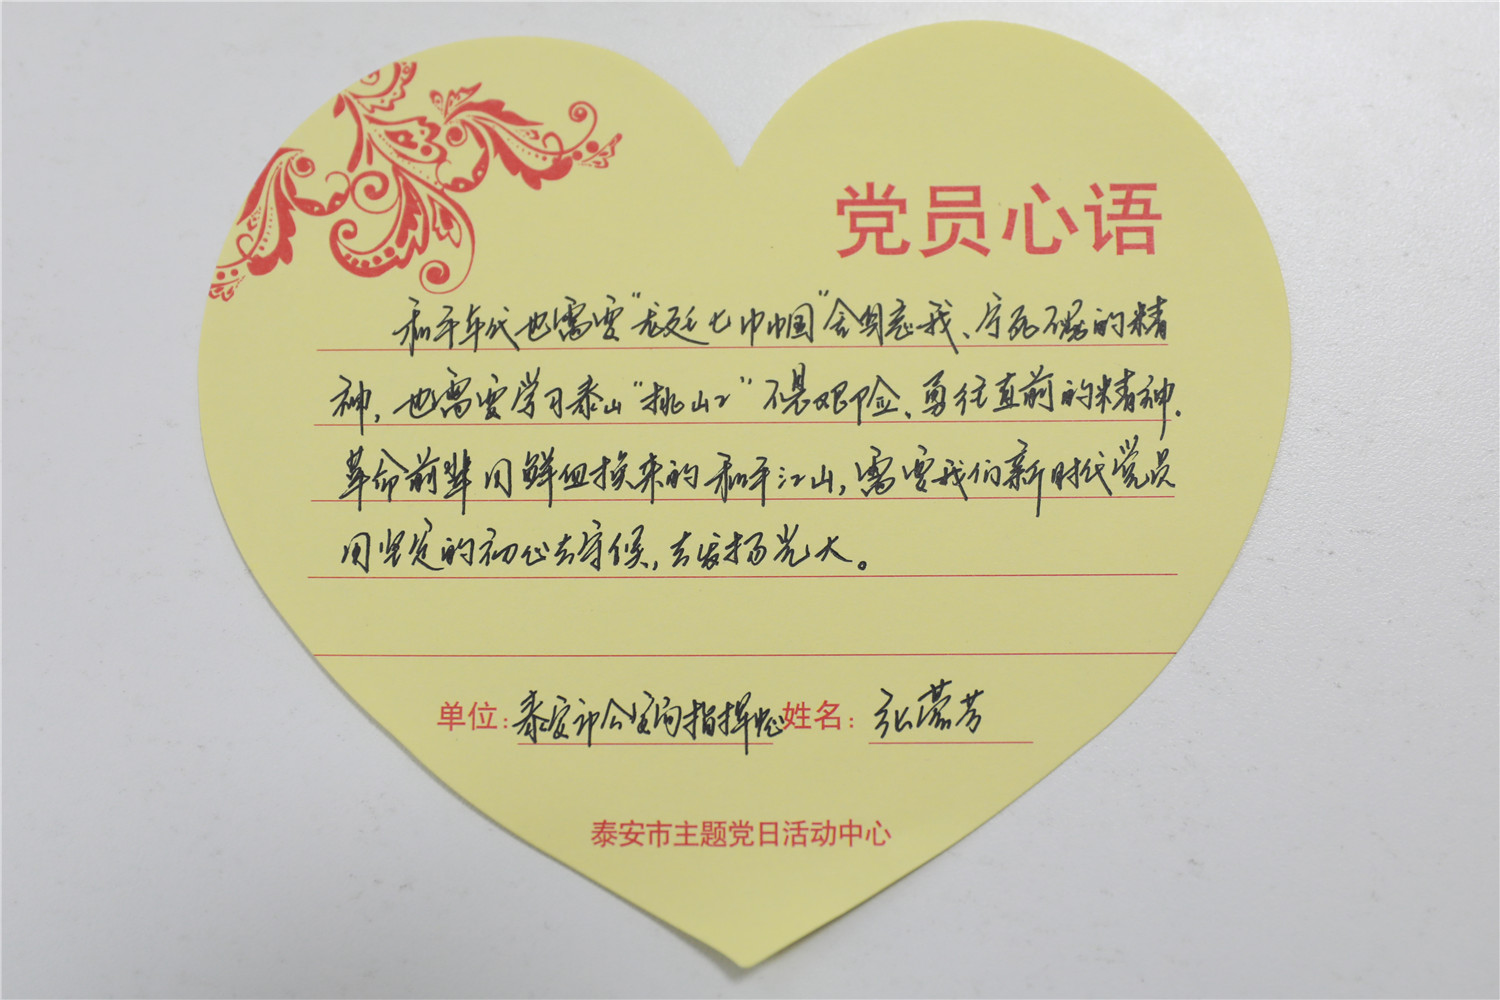 党员心语
和平年代也需要“龙廷七巾帼”舍身忘我、宁死不屈的精
神，也需要学习泰山“挑山工”不畏艰险、勇往直前的精神.
革命前辈用鲜血换来的和平江山，需要我们新时代党员
用坚定的初心去守候，去发扬光大。
单位：泰安市公安局指挥中心 姓名：张蕾芳
泰安市主题党日活动中心